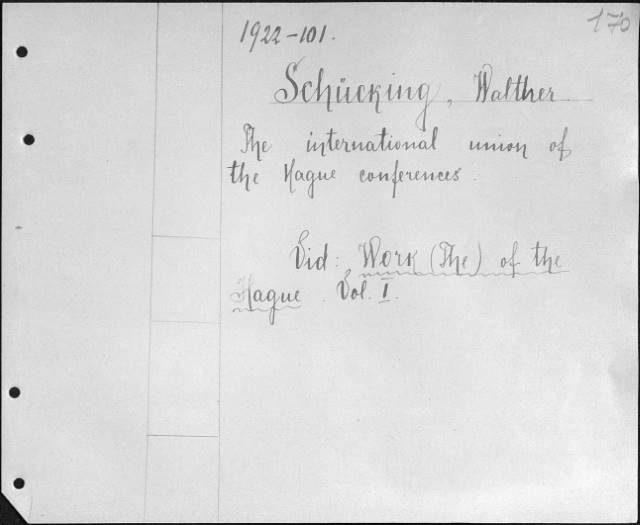 170
1922-101.
Schücking, Walther
The international union of
the Hague conferences.
Vid: Work (The) of the
Hague. Vol. I.